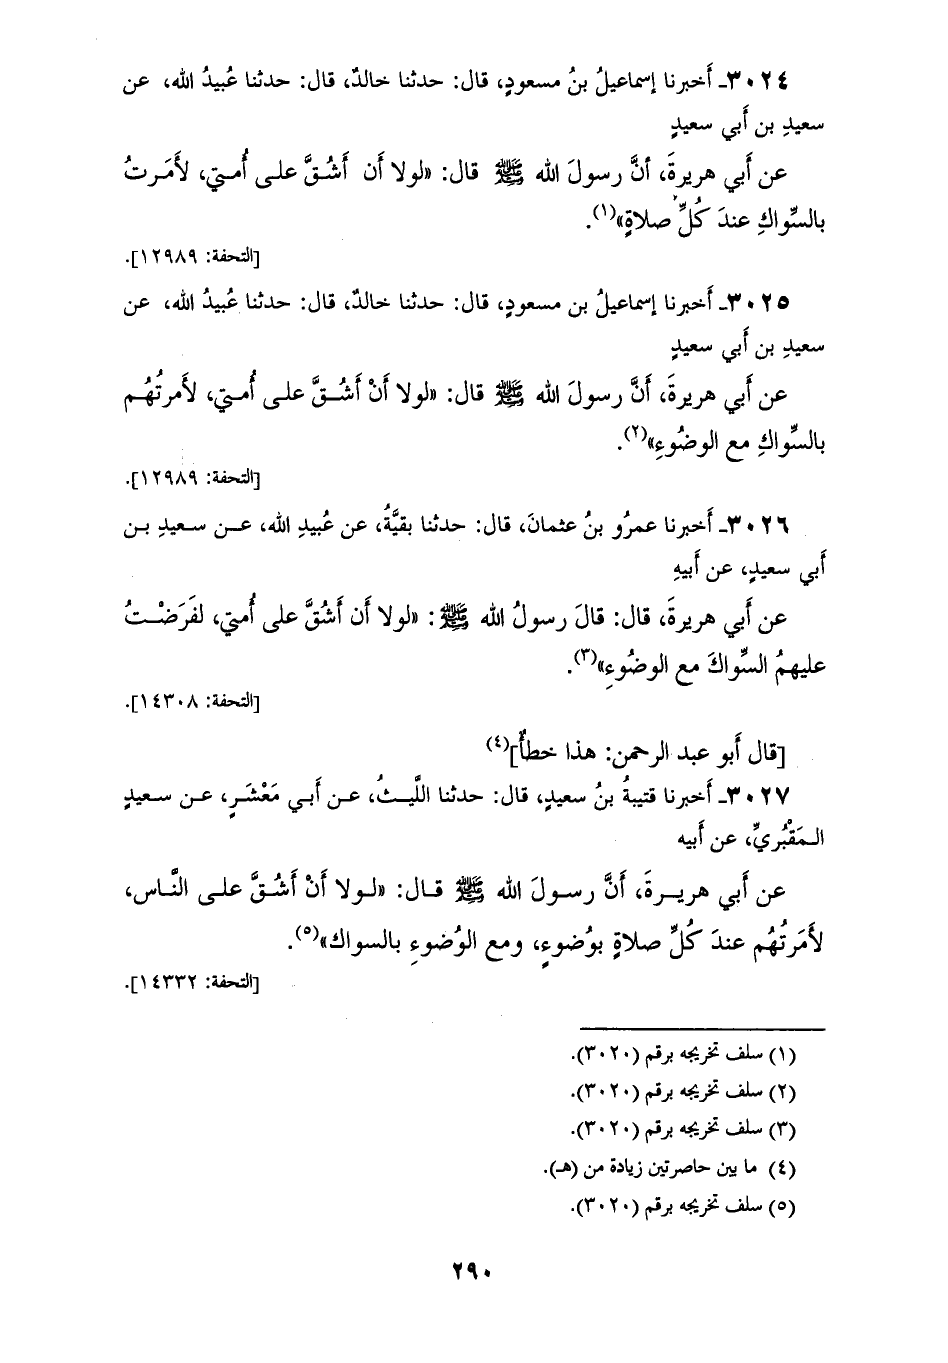 ٣٠٢٤ـ أَخبرنا إسماعيلُ بنُ مسعودٍ، قال: حدثنا خالدٌ، قال: حدثنا عُبيدُ الله، عن
سعيدِ بن أَبي سعيدٍ
عن أَبي هريرةَ، أنَّ رسولَ الله ﷺ قال: «لولا أَن أَشُقَّ على أُمتي، لأَمَرتُ
بالسِّواكِ عندَ كُلِّ صلاةٍ»(١).
[التحفة: ١٢٩٨٩].
٣٠٢٥ـ أَخبرنا إسماعيلُ بن مسعودٍ، قال: حدثنا خالدٌ، قال: حدثنا عُبيدُ الله، عن
سعيدِ بن أَبي سعيدٍ
عن أَبي هريرةَ، أَنَّ رسولَ الله ﷺ قال: «لولا أَنْ أَشُقَّ على أُمتي، لأَمرتُهُم
بالسِّواكِ مع الوضُوءِ»(٢).
[التحفة: ١٢٩٨٩].
٣٠٢٦ـ أَخبرنا عمرُو بنُ عثمانَ، قال: حدثنا بقيَّةُ، عن عُبيدِ الله، عن سعيدِ بن
أَبي سعيدٍ، عن أَبيهِ
عن أَبي هريرةَ، قال: قالَ رسولُ الله ﷺ: «لولا أَن أَشُقَّ على أُمتي، لفَرَضْتُ
عليهمُ السِّواكَ مع الوضُوءِ»(٣).
[التحفة: ١٤٣٠٨].
[قال أَبو عبد الرحمن: هذا خطأٌ](٤)
٣٠٢٧ـ أَخبرنا قتيبةُ بنُ سعيدٍ، قال: حدثنا اللَّيثُ، عن أَبي مَعْشَرٍ، عن سعيدٍ
المَقْبُريِّ، عن أَبيه
عن أَبي هريرةَ، أَنَّ رسولَ الله ﷺ قال: «لولا أَنْ أَشُقَّ على النَّاس،
لأَمَرتُهُم عندَ كُلِّ صلاةٍ بوُضوءٍ، ومع الوُضوءِ بالسواك»(٥).
[التحفة: ١٤٣٣٢].
(١) سلف تخريجه برقم (٣٠٢٠).
(٢) سلف تخريجه برقم (٣٠٢٠).
(٣) سلف تخريجه برقم (٣٠٢٠).
(٤) ما بين حاصرتين زيادة من (هـ).
(٥) سلف تخريجه برقم (٣٠٢٠).
٢٩٠